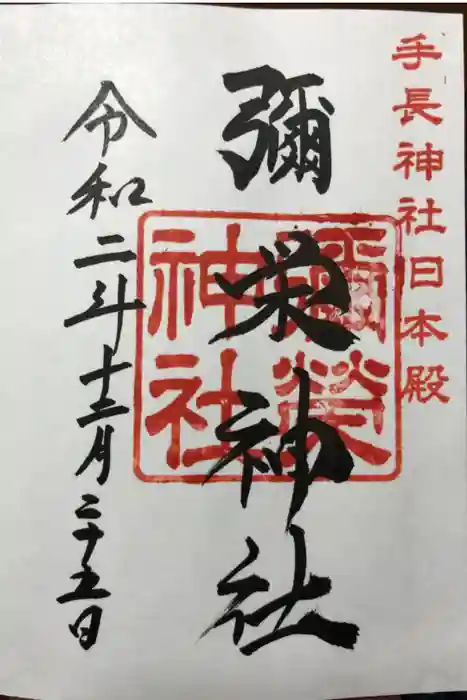 手長神社旧本殿
彌栄神社
彌榮神社
令和二年十二月二十五日